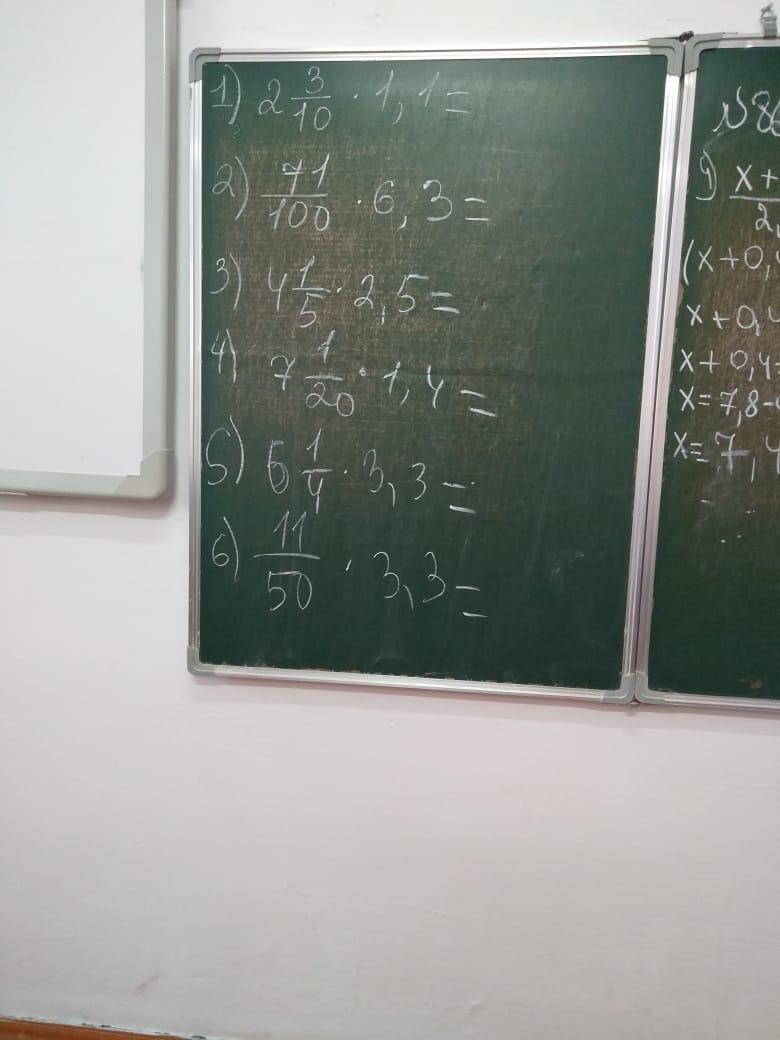 1) 2 3/10 · 1,1 =
2) 71/100 · 6,3 =
3) 4 1/5 · 2,5 =
4) 7 1/20 · 1,4 =
5) 6 1/4 · 3,3 =
6) 11/50 · 3,3 =
№ 86
1) x+/2,
(x+0,4
x+0,4
x+0,4=
x=7,8-
x=7,4